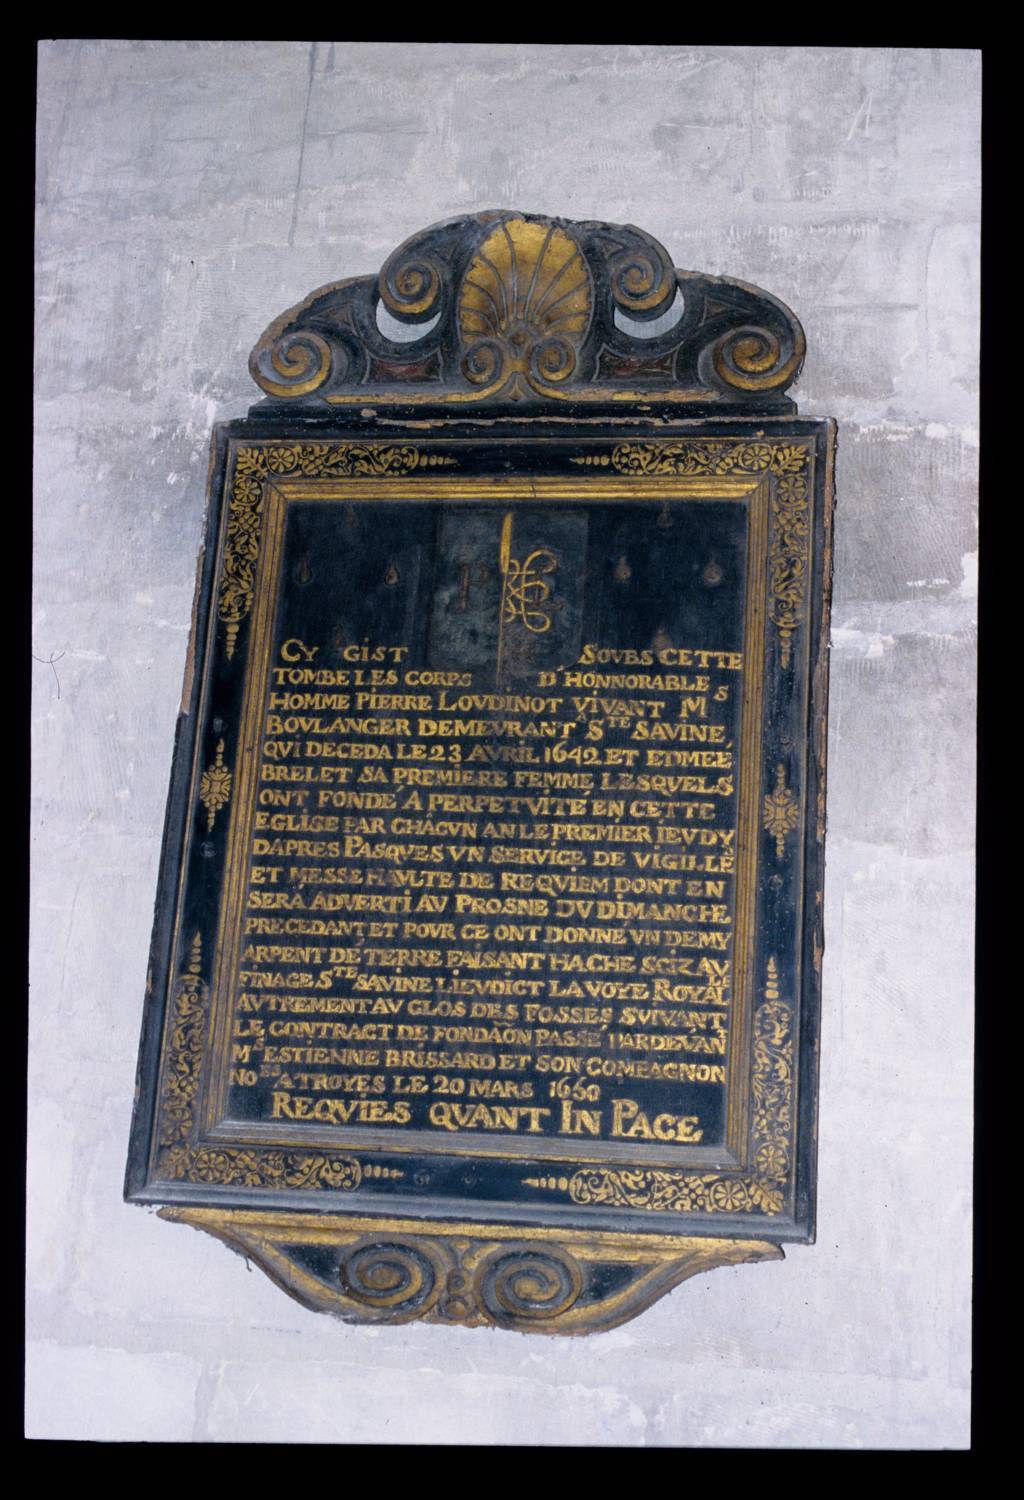 CY GIST SOVBS CETTE
TOMBE LES CORPS D'HONNORABLE
HOMME PIERRE LOVDINOT VIVANT Mˢ
BOVLANGER DEMEVRANT A Sᵀᴱ SAVINE
QVI DECEDA LE 23 AVRIL 1642 ET EDMEE
BRELET SA PREMIERE FEMME LESQVELS
ONT FONDÉ A PERPETVITÉ EN CETTE
EGLISE PAR CHACVN AN LE PREMIER IEVDY
DAPRES PASQVES VN SERVICE DE VIGILLE
ET MESSE HAVLTE DE REQVIEM DONT EN
SERA ADVERTI AV PROSNE DV DIMANCHE
PRECEDANT ET POVR CE ONT DONNÉ VN DEMY
ARPENT DE TERRE FAISANT HACHE SCIZ AV
FINAGE Sᵀᴱ SAVINE LIEVDICT LA VOYE ROYALLE
AVTREMENT AV CLOS DES FOSSES SVIVANT
LE CONTRACT DE FONDAÕN PASSÉ PARDEVAN
Mˢ ESTIENNE BRISSARD ET SON COMPAGNON
NOᴿᴱˢ A TROYES LE 20 MARS 1650
REQVIES QVANT IN PACE